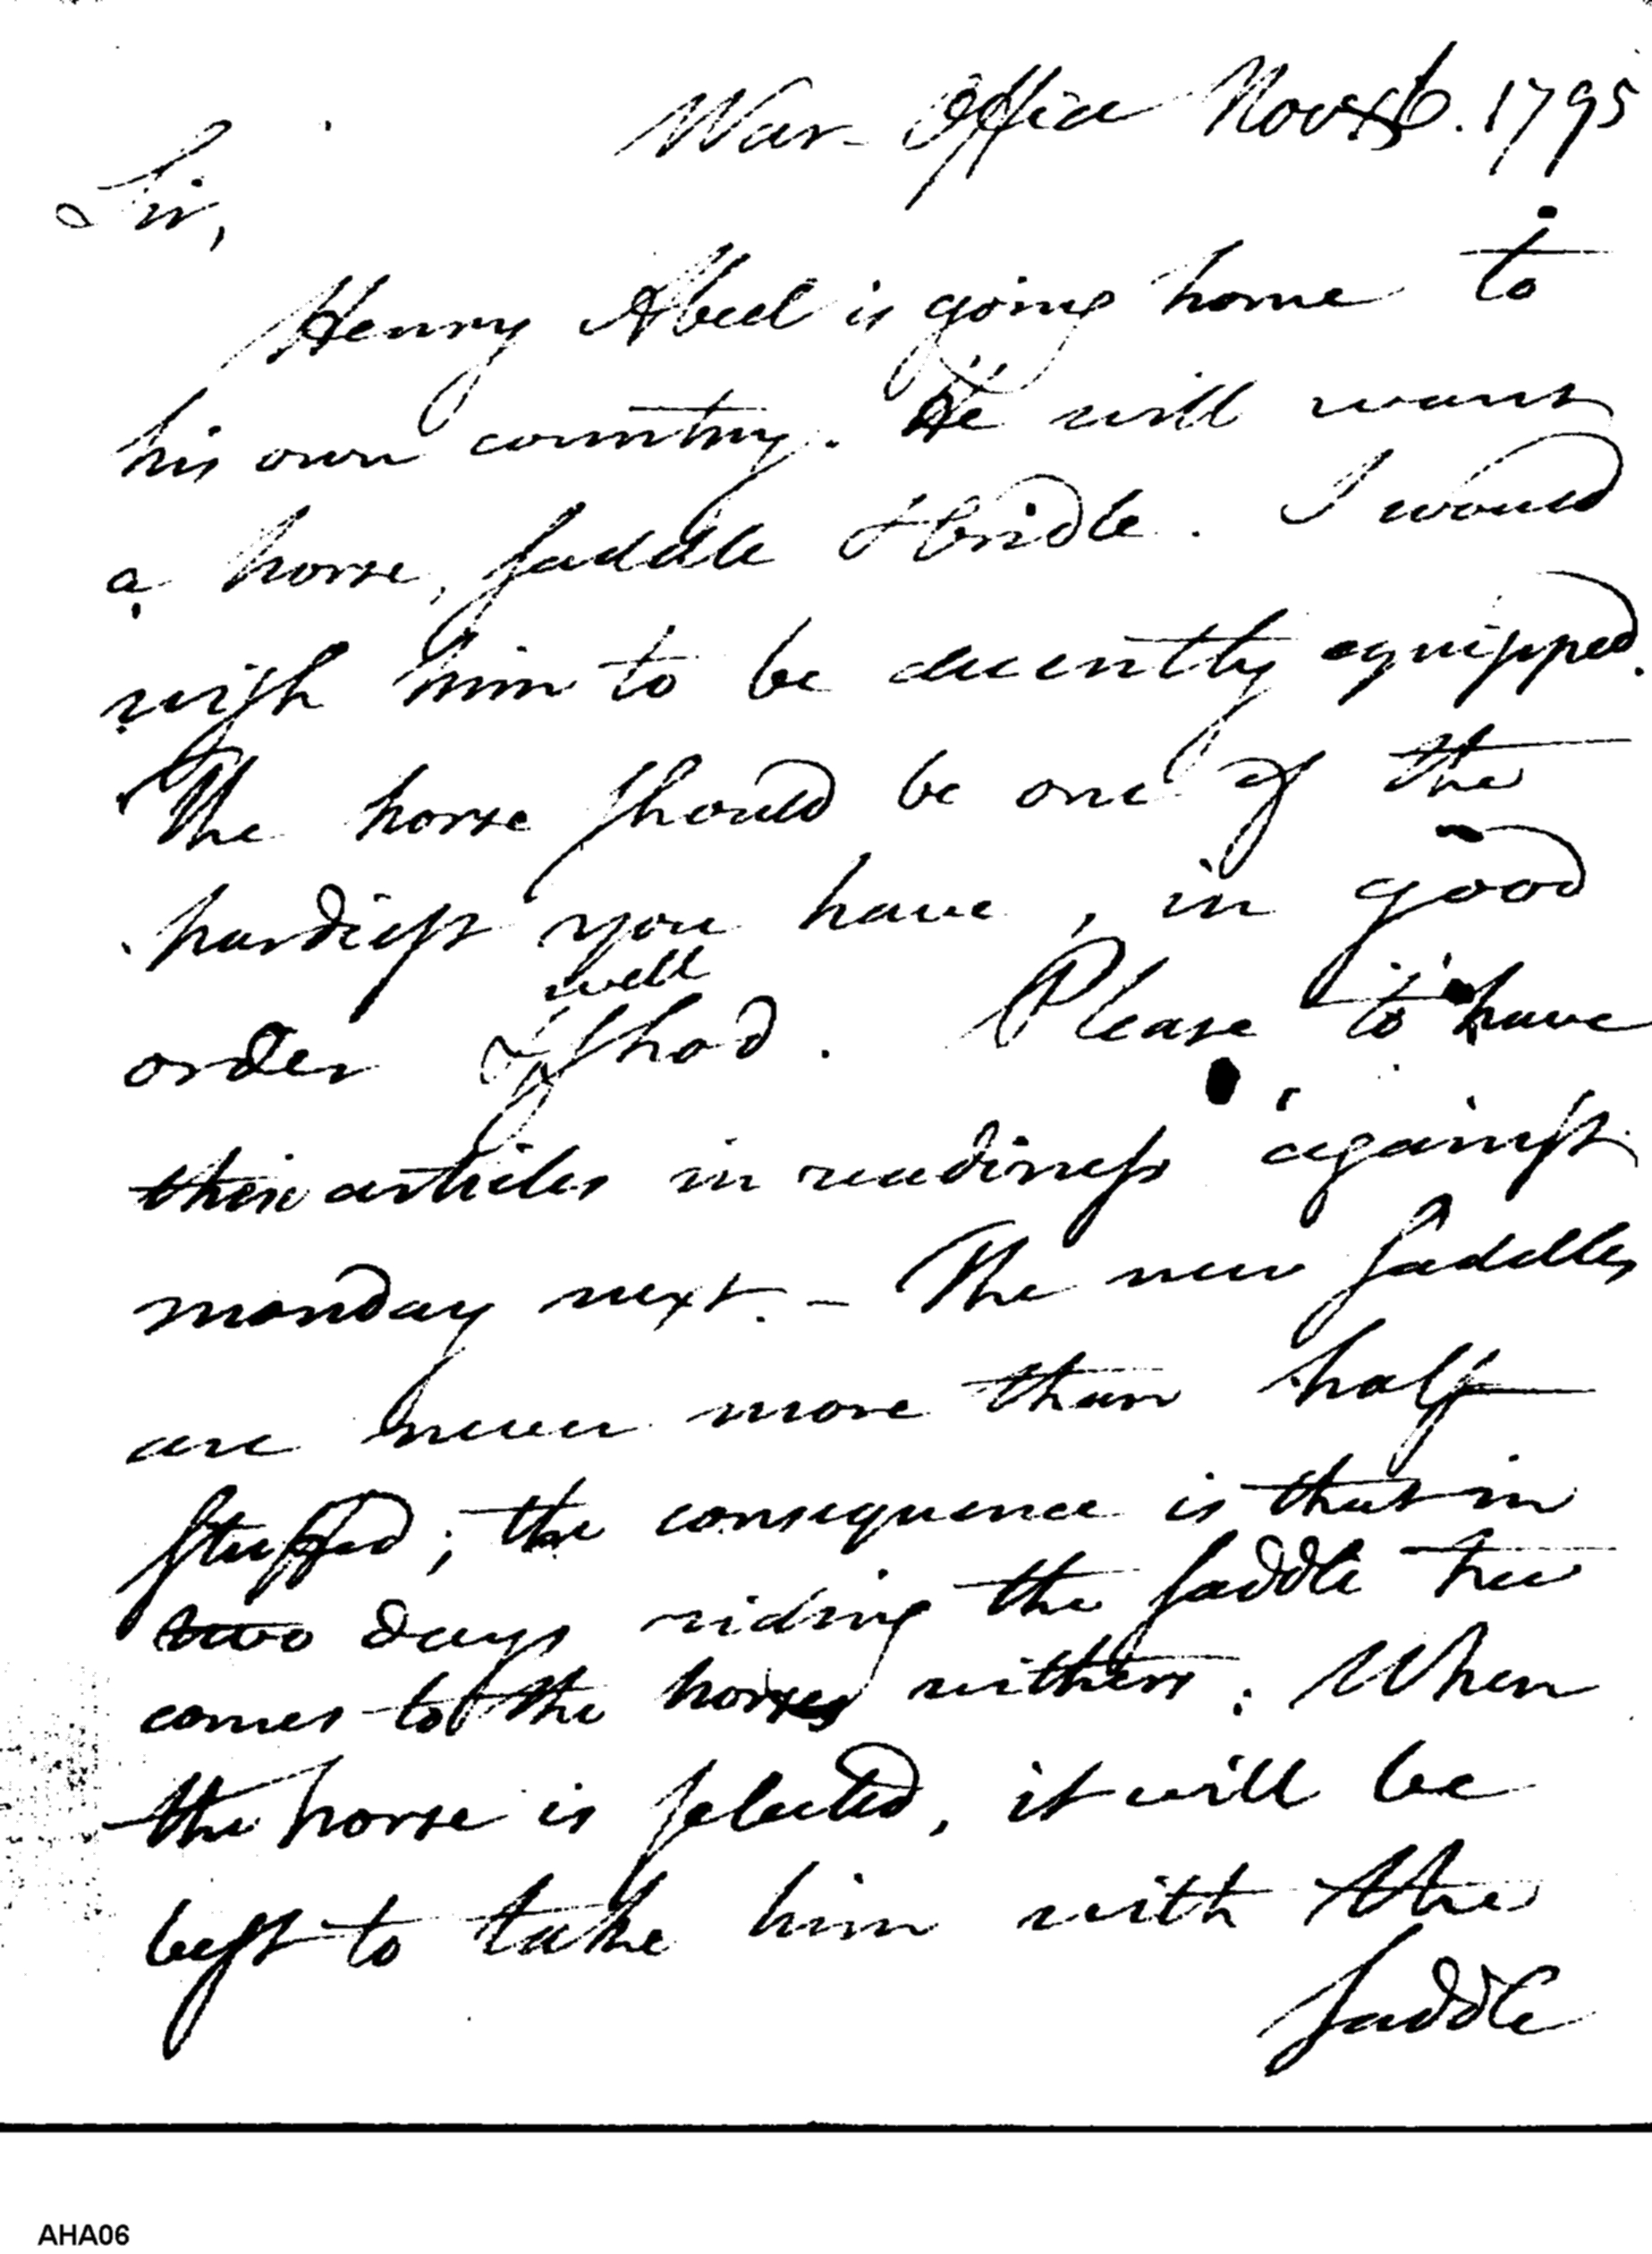 War-Office Nov. 6. 1795
Sir,
Henry Abeel is going home to
his own country. He will want
a horse, saddle & bridle. I would
wish him to be decently equipped.
The horse should be one of the
hardiest you have, in good
well
order & shod. Please to have
these articles in readiness against
monday next. - The new saddles
are never more than half
stuffed; the consequence is that in
two days riding the saddle tree
comes to the horses withers. When
the horse is selected, it will be
best to take him with the
saddle
AHA06